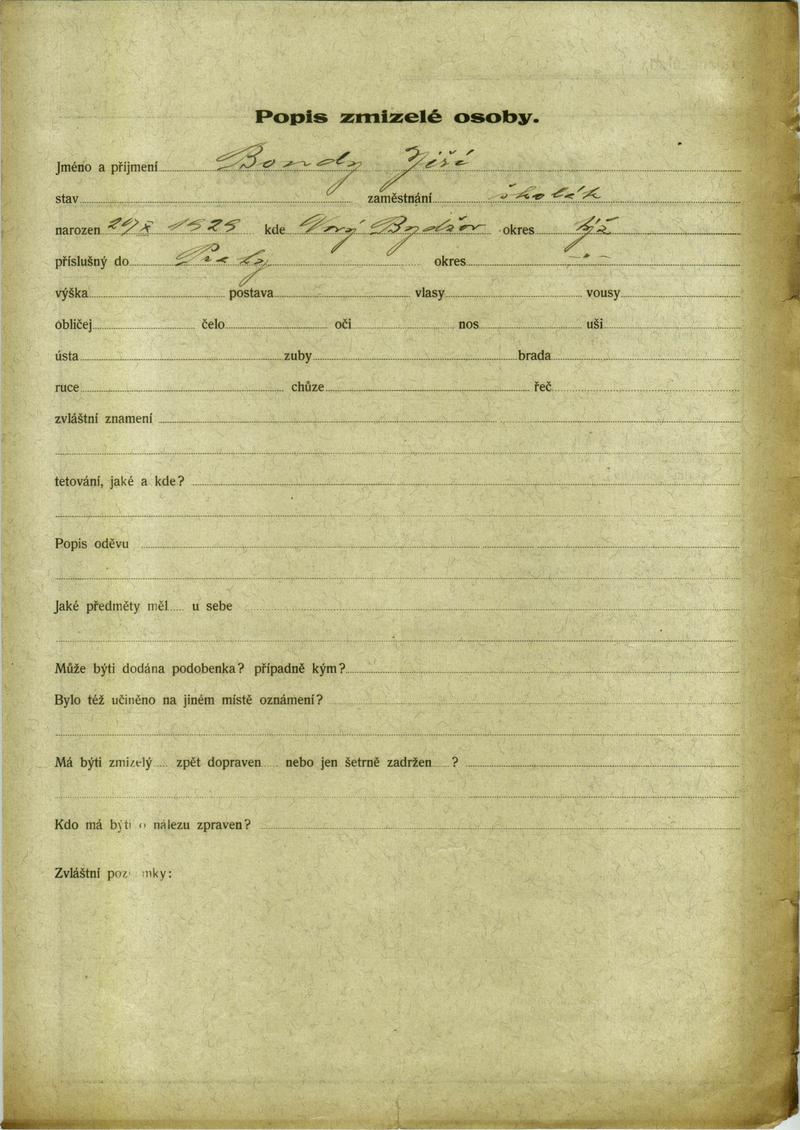 Popis zmizelé osoby.
Jméno a příjmení Bondy Jiří
stav zaměstnání školák
narozen 29/X 1929 kde Nový Bydžov okres týž
příslušný do Prahy okres -"-
výška postava vlasy vousy
obličej čelo oči nos uši
ústa zuby brada
ruce chůze řeč
zvláštní znamení
tetování, jaké a kde?
Popis oděvu
Jaké předměty měl u sebe
Může býti dodána podobenka? případně kým?
Bylo též učiněno na jiném místě oznámení?
Má býti zmizelý zpět dopraven nebo jen šetrně zadržen ?
Kdo má býti o nálezu zpraven?
Zvláštní poz mky: